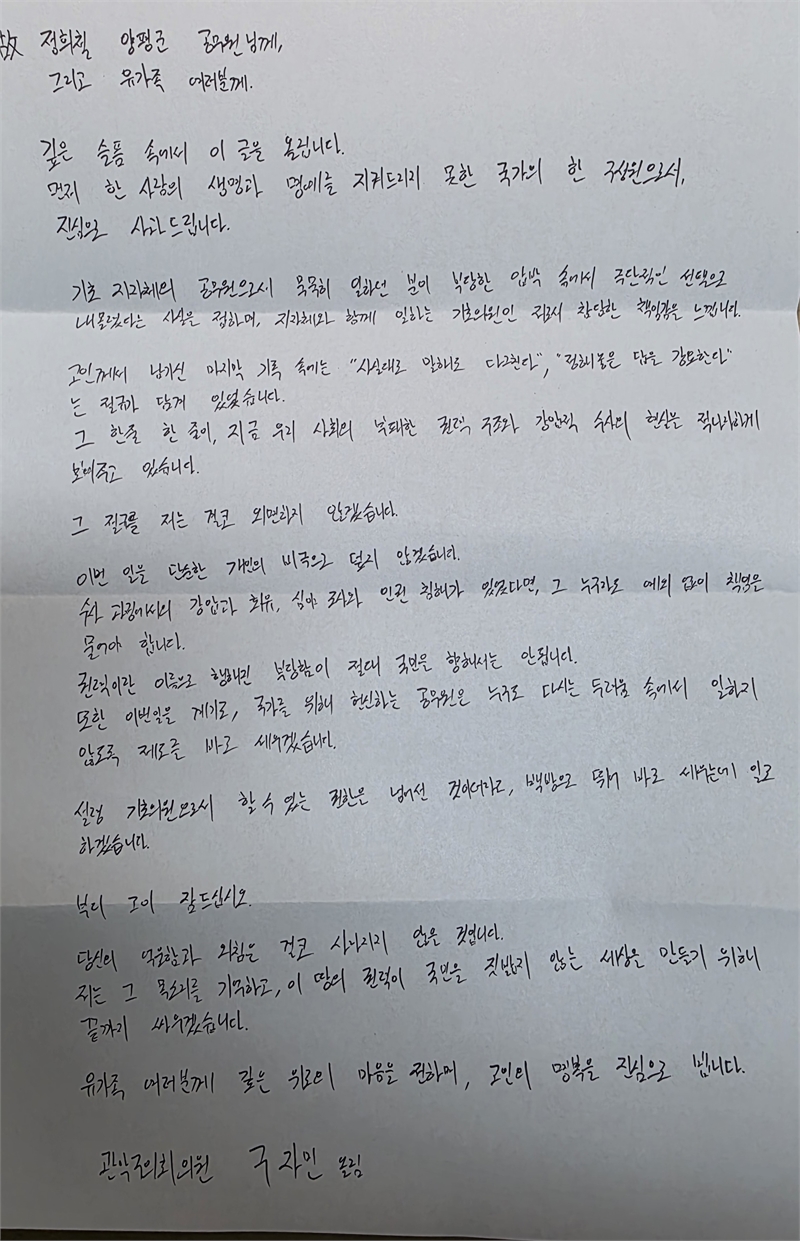 故 정희철 양평군 공무원님께,
그리고 유가족 여러분께.
깊은 슬픔 속에서 이 글을 올립니다.
먼저 한 사람의 생명과 명예를 지켜드리지 못한 국가의 한 구성원으로서,
진심으로 사과드립니다.
기초 지자체의 공무원으로서 묵묵히 일하던 분이 부당한 압박 속에서 극단적인 선택으로
내몰렸다는 사실을 접하며, 지자체와 함께 일하는 기초의원인 저로서 참담한 책임감을 느낍니다.
고인께서 남기신 마지막 기록 속에는 "사실대로 말해도 다그친다", "정해놓은 답을 강요한다"
는 절규가 담겨 있었습니다.
그 한줄 한 줄이, 지금 우리 사회의 부패한 권력 구조와 강압적 수사의 현실을 적나라하게
보여주고 있습니다.
그 절규를 저는 결코 외면하지 않겠습니다.
이번 일을 단순한 개인의 비극으로 덮지 않겠습니다.
수사 과정에서의 강압과 회유, 심야 조사와 인권 침해가 있었다면, 그 누구라도 예외 없이 책임을
물어야 합니다.
권력이란 이름으로 행해진 부당함이 절대 국민을 향해서는 안됩니다.
또한 이번일을 계기로, 국가를 위해 헌신하는 공무원은 누구도 다시는 두려움 속에서 일하지
않도록 제도를 바로 세우겠습니다.
설령 기초의원으로서 할 수 있는 권한을 넘어선 것이더라도, 백방으로 뛰어 바로 세우는데 일조
하겠습니다.
부디 고이 잠드십시오.
당신의 억울함과 외침은 결코 사라지지 않을 것입니다.
저는 그 목소리를 기억하고, 이 땅의 권력이 국민을 짓밟지 않는 세상을 만들기 위해
끝까지 싸우겠습니다.
유가족 여러분께 깊은 위로의 마음을 전하며, 고인의 명복을 진심으로 빕니다.
관악구의회의원 구자민 올림